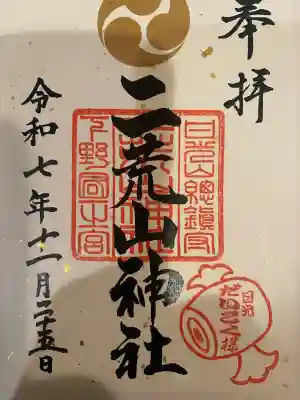 奉拝
二荒山神社
日光山總鎮守
下野國一之宮
令和七年十一月二十五日
日光
だいこく様